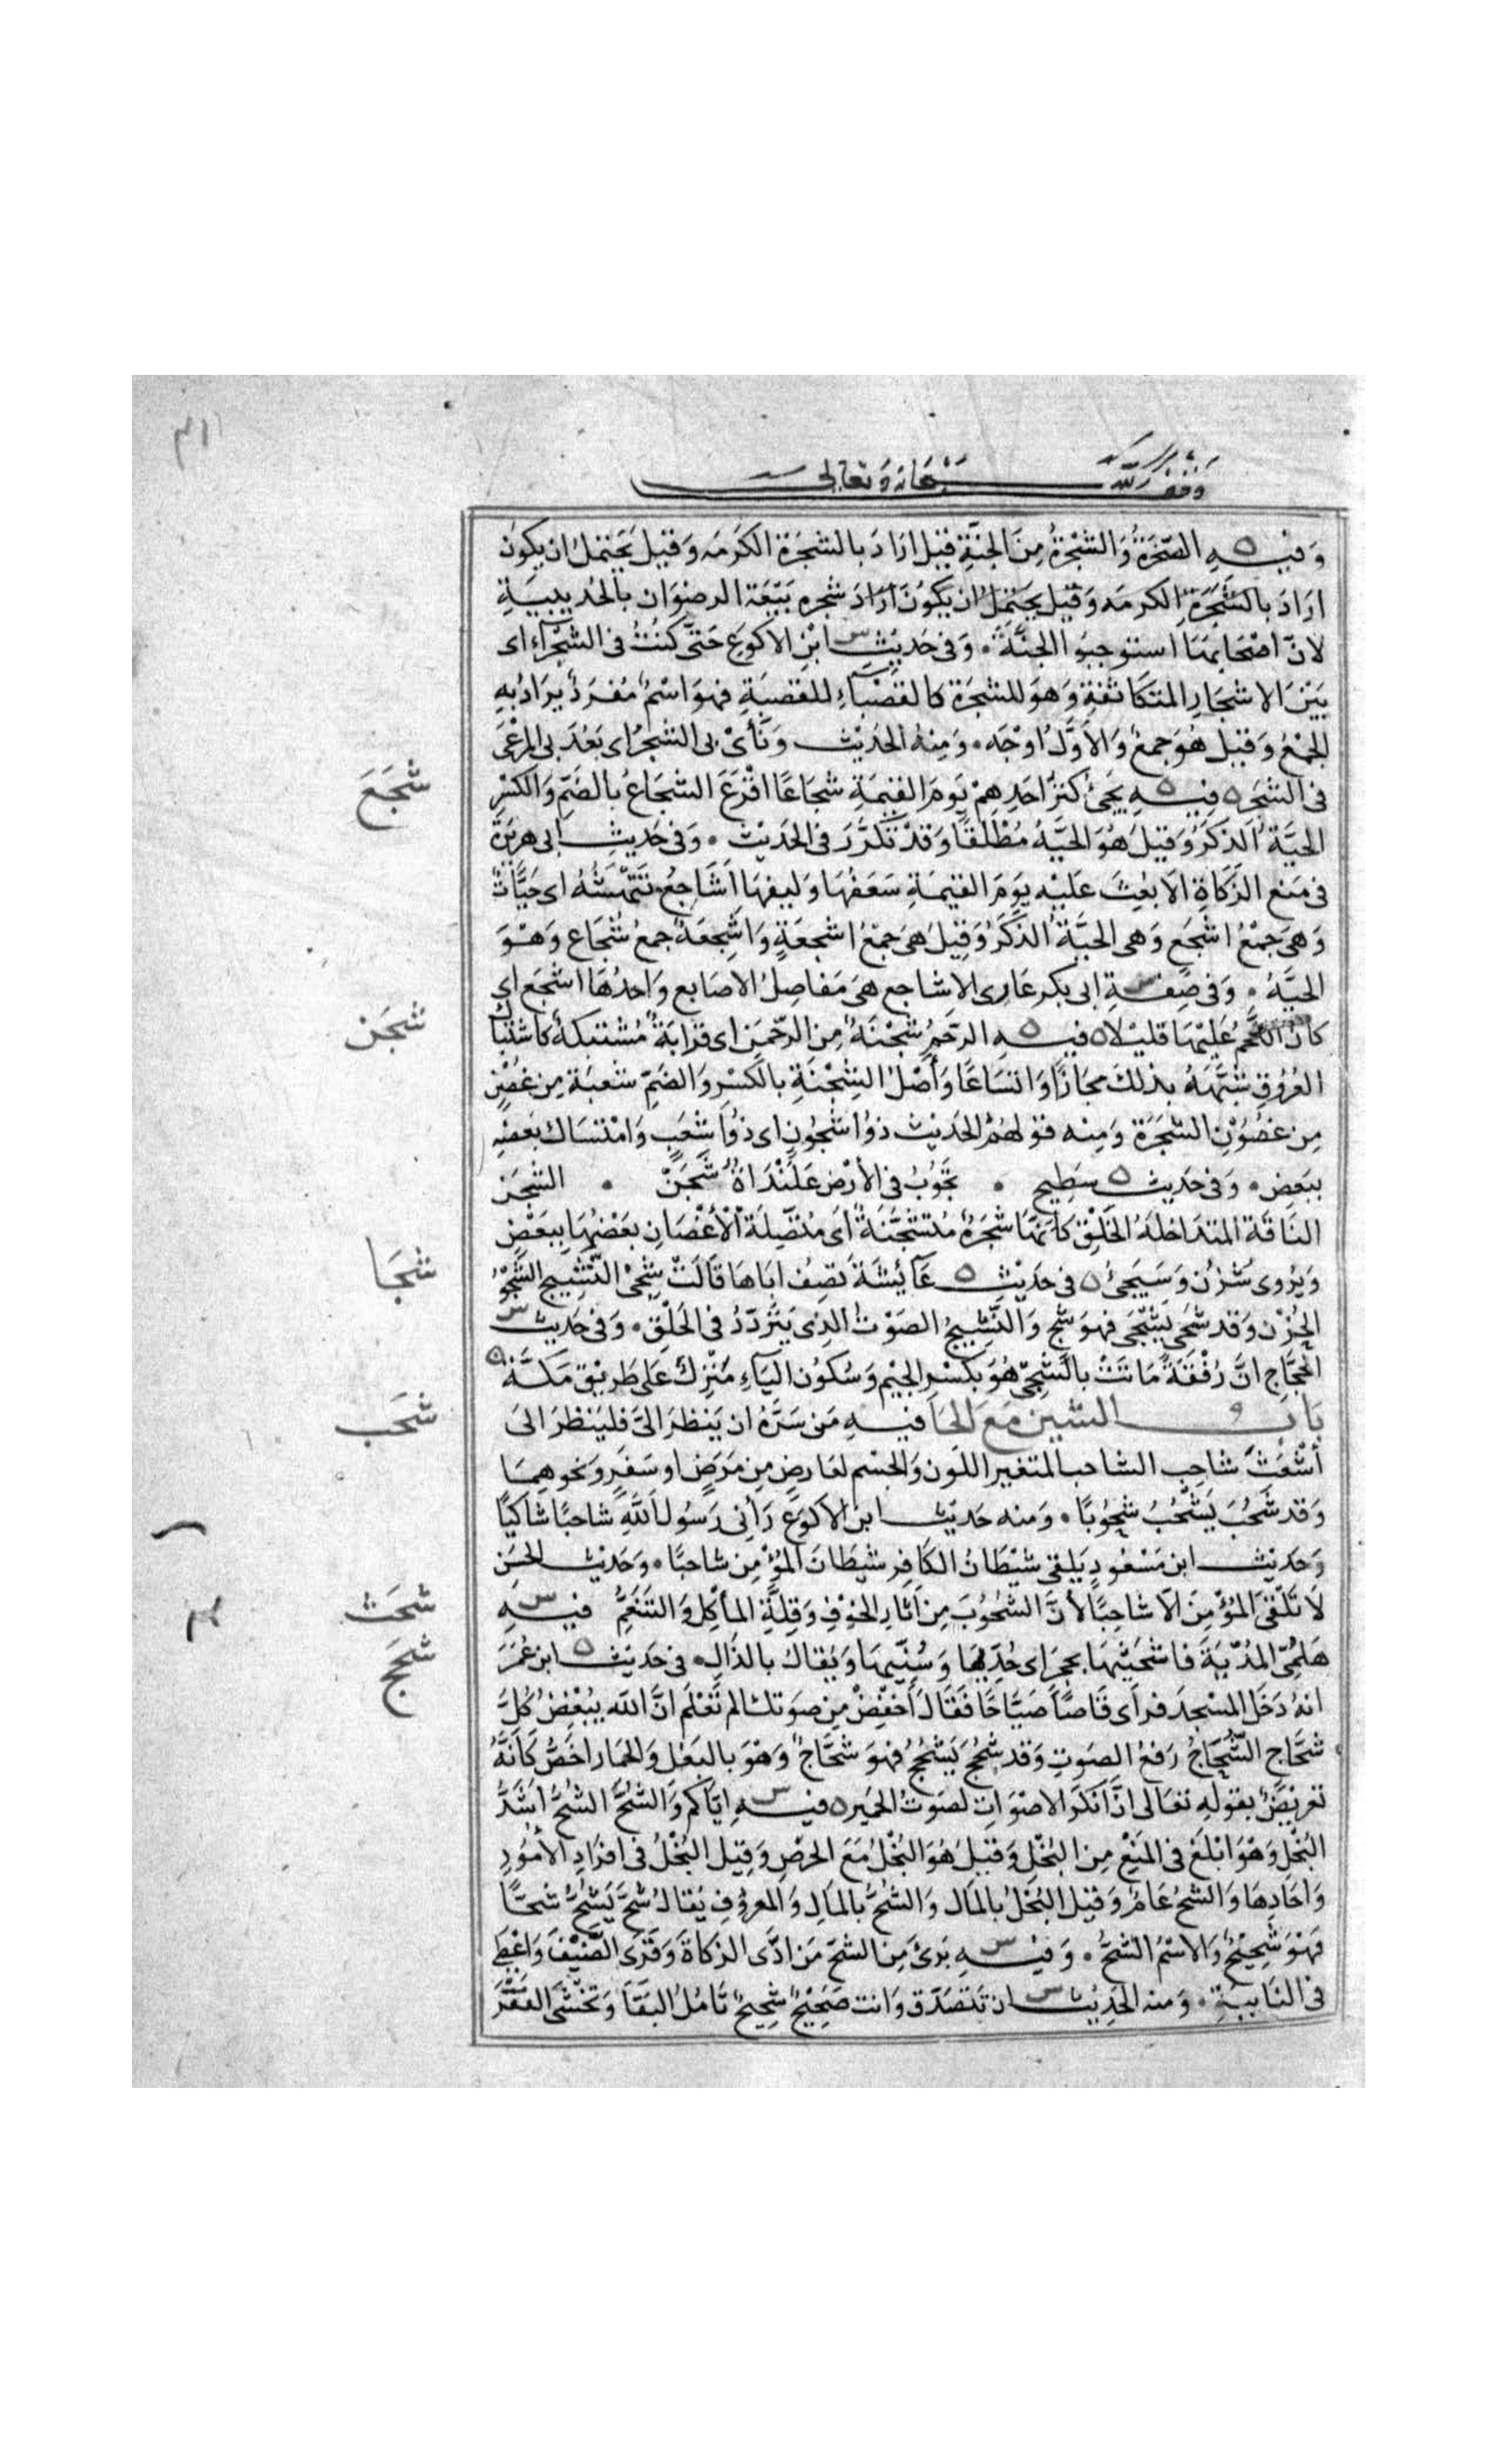 وقف لله سبحانه وتعالى
وَفيْـــهِ الصَّخرَةُ وَالشَّجْرَةُ مِنَ الجنَّةِ قيْل ارَادَ بالشجَرَة الكَرمَه وَقيْل يَحتملُ ان يكون
ارَادَ بالشَّجَرَة الكرمَه وَقيْل يحتملُ ان يكُونَ أرَادَ شجره بَيْعَة الرضوَان بالحُديبيَةِ
لانّ اصْحَابهَا استَوجبوُا الجنَّةَ . وَفى حَديْثِ ابْنِ الاكوَع حَتَّى كنتُ فى الشجْرَآءِ اى
بَيْنَ الاشجَارِ المتكَاثفةِ وَهوَ للشجَرَة كالقصْبَآءِ للقصبَةِ فهوَ اسْمٌ مفرَدٌ يرَادُ بهِ
الجمْعُ وَقيْل هُوَ جمعٌ وَالاَوَّلُ اوْجَه . وَمِنهُ الحَدِيْث وَنَأىْ بى الشجَرُ اى بَعُدَ بى المرْعَى
فى الشجَره فيْــهِ يَجئُ كنزُ احَدِهِمْ يَومَ القيمَةِ شجَاعًا اقْرَعَ الشجَاعُ بالضَّمِّ وَالكسْرِ
شَجَعَ
الحيَّةُ الذكَرُ وَقيلَ هُوَ الحيَّةُ مُطْلَقًا وَقدْ تكرَّرَ فى الحَدِيْث . وَفى حَديث ابى هريرَة
فى مَنع الزكَاةِ الاّ بعِثَ عَليْه يَومَ القيمَةِ سَعَفُهَا وَليفهَا اَشَاجعُ تَنْهَشُهُ اى حَيَّاتٌ
وَهىَ جمْعُ اشجَع وَهى الحيَّةُ الذكَرُ وَقيْلَ هىَ جمْعُ اشجعَةٍ وَاشجعَةٌ جمعُ شجَاع وَهْوَ
الحيَّةُ . وَفى صفـــةِ ابى بكر عَارِى الاشاجع هىَ مَفاصِلُ الاصَابع وَاحدُهَا اشجَع اى
كانَ اللحْمُ عَليْهَا قليْلا فيـــهِ الرَّحَمُ شجْنَةٌ مِنَ الرَّحمَنِ اى قرَابَةٌ مُشتبكةٌ كاشتبَاك
شجَن
العُرُوقِ شَبَّهَهُ بذلكَ مجَازًا وَاتسَاعًا وَأصْلُ الشِجْنَةِ بالكسْرِ وَالضَّمِّ شعبَة مِن غصْنٍ
مِن غصُوْنِ الشجَرَة وَمِنه قولهُمُ الحَديْث ذوُا شجُونٍ اى ذوُا شعَبٍ وَامْتسَاك بعَضهِ
ببَعض . وَفى حَديث سَطِيحٍ . تجوُبُ فى الأرْض عَلَنْدَاةٌ شَجَنّْ . الشجَن
النَاقَة المتدَاخلَةُ الخَلْقِ كاَنهَا شجَرَةٌ متشجّنَةٌ اىَ مُتّصِلَةُ الأغْصَان بعَضُهَا ببَعْضٍ
وَيُرْوى شَزْن وَسَيَجئُ فى حَديْثِ عَآئِشَةَ تصِفُ ابَاهَا قَالَتْ شِجىّ النَّشِيْج الشَّجْوُ
شجَا
الحُزْن وَقد شجَى يَشجَى فهوَ شج وَالنَّشِيجُ الصَوْتُ الذى يَتَرَدّدُ فى الحَلْقِ . وَفى حَديث
الحجَّاج انَّ رُفْقَةً مَاتَتْ بالشَّجىْ هُوَ بكسْر الجيْم وَسُكوُن اليَآءِ مَنْزِلٌ عَلى طَرِيْق مَكَّة
بَابُ الشين مَعَ الحَا فيْــهِ مَن سَرَّهُ ان يَنظرَ الىَّ فليَنظرَ الىَ
شحَب
أشْعَثَ شاحِب الشاحب المتغير اللَون وَالجسْم لعَارِضٍ مِن مَرَضٍ او سَفَر وَنحوهمَا
وَقد شَحُبَ يَشْحُبُ شحُوْبًا . وَمنه حَديْث ابن الاكوَع رَأنى رَسُول اللهِ شاحبًا شاكيًا
وَحَديْث ابن مَسْعُودٍ يَلقى شيْطَانُ الكافِر شيْطَانَ المُؤْمِنِ شاحبًا . وَحَديْث الحسَن
لاَ تَلْقَى المُؤْمِنَ الاّ شاحِبًا لأنَّ الشحُوْبَ مِن آثارِ الخوْفِ وَقِلّةِ المأكلِ وَالتنَعُّمِ فيـــهِ
شحَث
هَلمّى المُدْيَةَ فاشحَثيْهَا بحجَر اى حُدّيْهَا وَسُنّيهَا وَيُقال بالذَالِ . فى حَديْث ابن عُمَرَ
شحَجَ
انهُ دَخَلَ المسْجدَ فرأى قَاصًّا صَيَّاحًا فَقَالَ أخفِضْ مِن صوتك الم تَعْلَم انَّ الله يبْغِضُ كُلَّ
شحَّاج الشُّحَاجُ رَفعُ الصوت وَقد شحَجَ يَشحَجُ فهوَ شحَّاجٌ وَهْوَ بالبغْل وَالحمَار اخَصُّ كانَّهُ
تعرِيْضٌ بقولِهِ تعَالى انَّ انكرَ الاصوَاتِ لصَوتُ الحَمِير فيــهِ ايَّاكم وَالشُّحَّ الشُحُّ أشَدُّ
البُخْلِ وَهْوَ ابْلَغ فى المَنِعْ مِن البُخْلِ وَقيْلَ هُوَ البُخْلُ مَعَ الحرْصِ وَقِيلَ البُخْلُ فى افرَادِ الأمُوْرِ
وَاحَادِهَا وَالشحُّ عَامٌ وَقيْل البُخْلُ بالمَال وَالشُحُّ بالمَالِ وَالمعرُوفِ يُقَالُ شحَّ يَشحُّ شحًّا
فهْوَ شحِيْحٌ وَالاسْمُ الشحُّ . وَفيْـــهِ بَرئَ مِنَ الشحِّ مَن ادَّى الزكاةَ وَقرَى الضّيْفَ وَاعْطَى
فى النَايبةِ . وَمنه الحَديْث ان تَتصَدَّق وَانت صَحِيْحٌ شحِيحٌ تَأمُلُ البَقَآ وَتخشَى الفَقْرَ